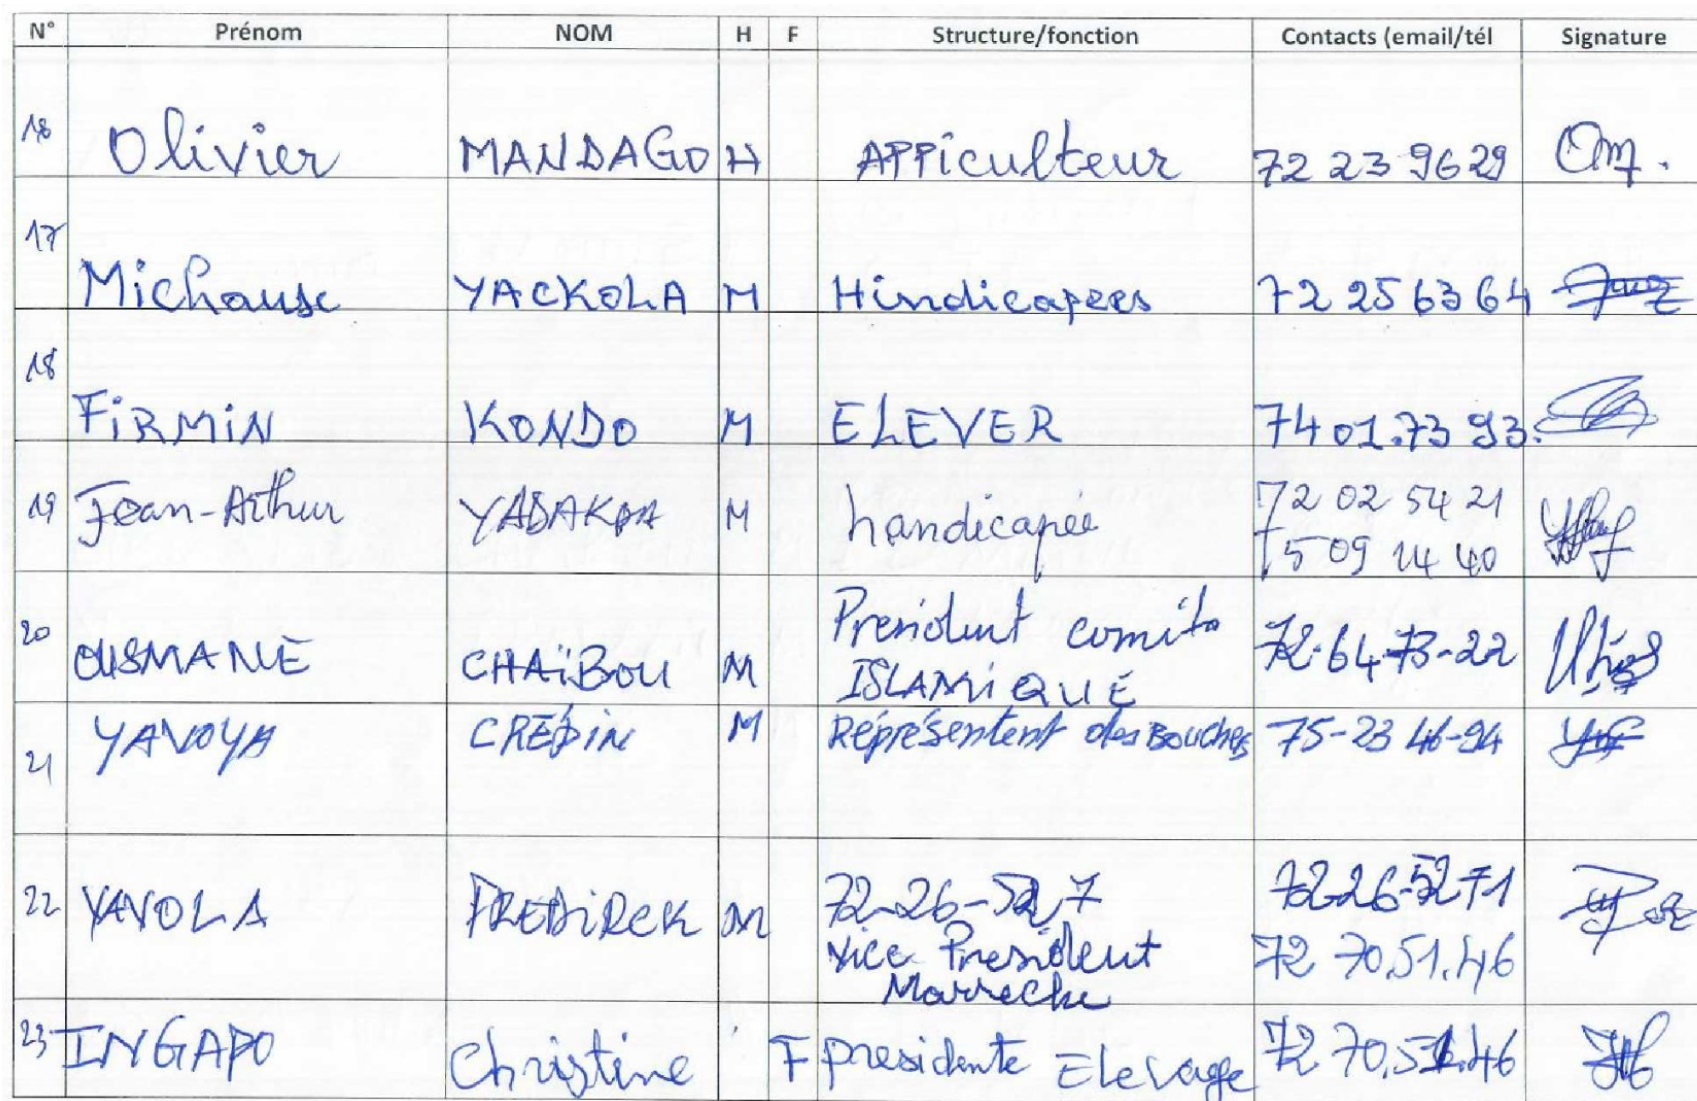 N° Prénom NOM H F Structure/fonction Contacts (email/tél Signature
18 Olivier MANDAGO H APPiculteur 72 23 96 29
17 Michause YACKOLA M Hindicapees 72 25 63 64
18 FiRMiN KONDO M ELEVER 74 01.73 93.
19 Jean-Arthur YADAKPA M handicapée 72 02 54 21
75 09 14 40
20 OUSMANE CHAÏBOU M President comité 72-64-73-22
ISLAMiQUE
21 YAVOYA CREPIN M Réprésentent des Bouchers 75-23 46-94
22 YAVOLA FREDiRCK M 72-26-52 7 72-26-52-71
Vice President 72 70.51.46
Marreche
23 INGAPO Christine F presidente Elevage 72 70.51.46